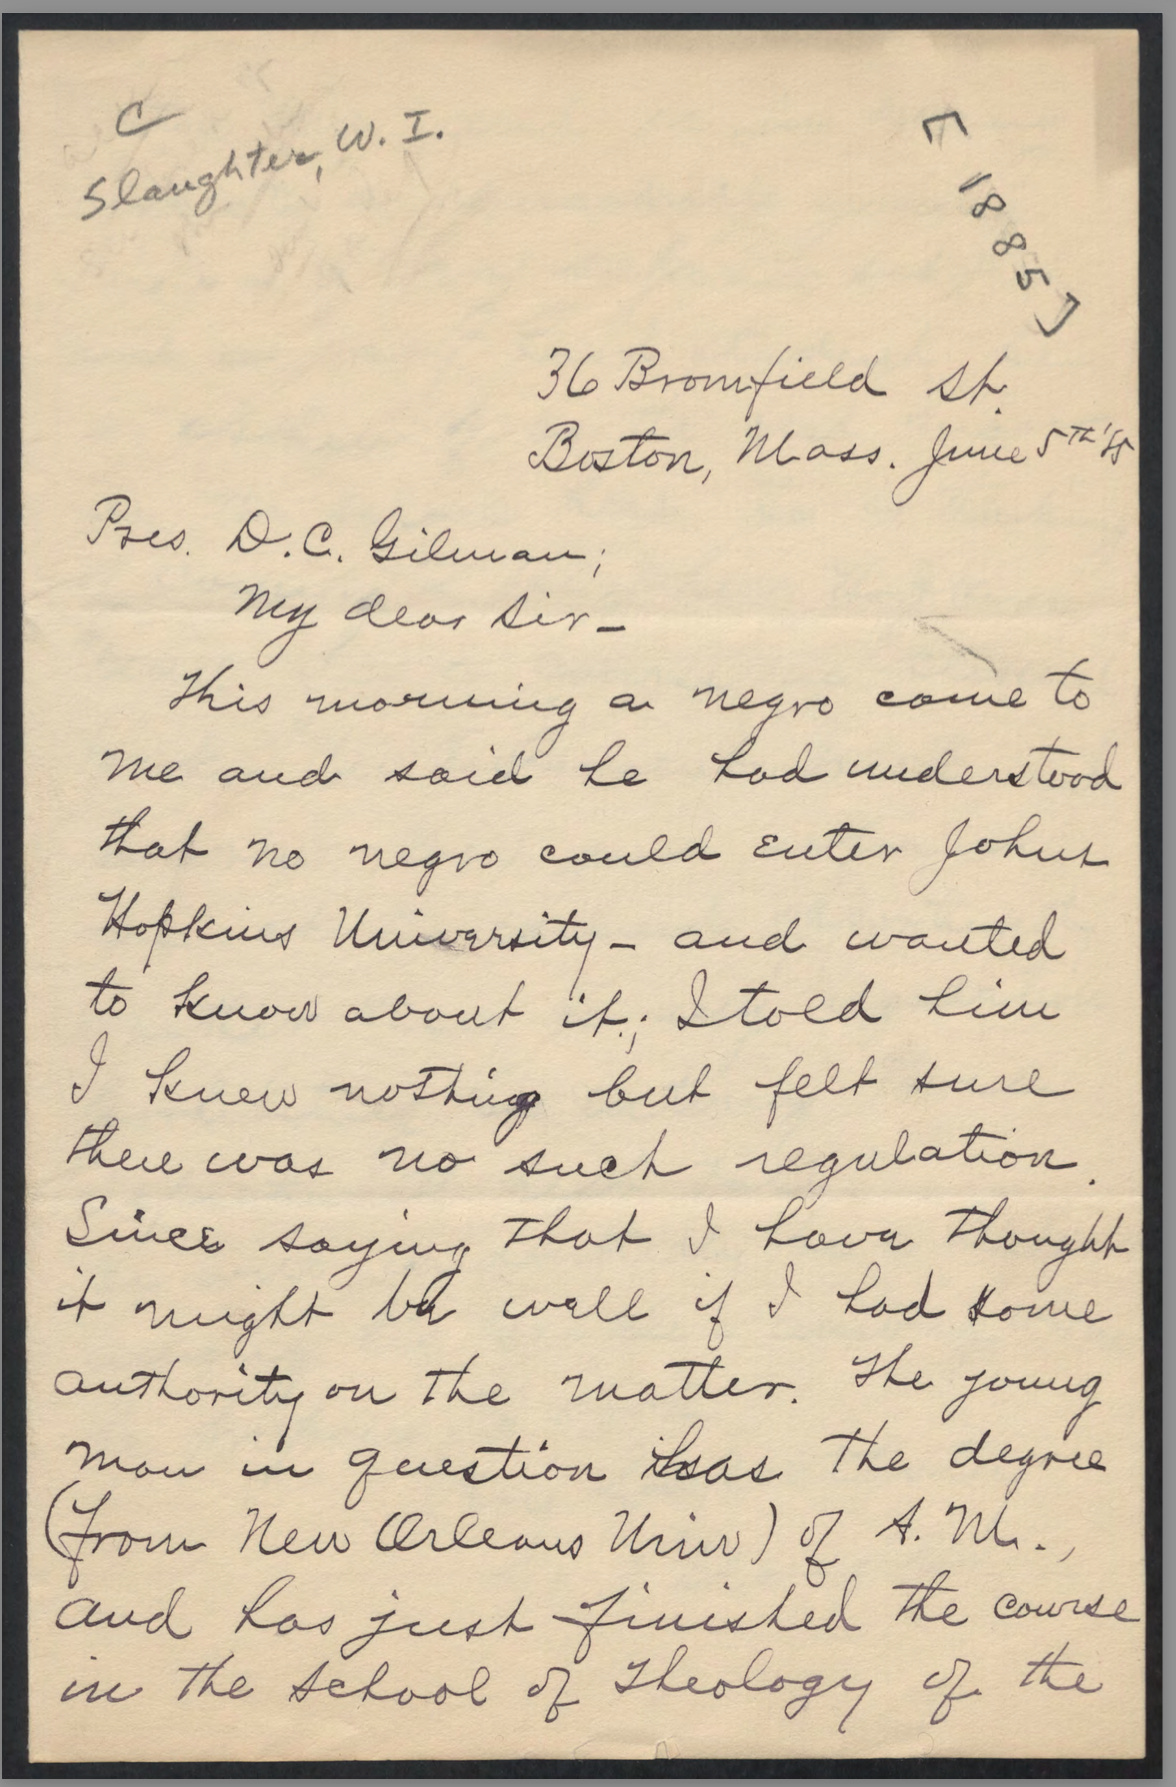 C
Slaughter, W. I.
[1885]
36 Bromfield St.
Boston, Mass. June 5th '85
Pres. D. C. Gilman;
My dear Sir –
This morning a negro came to
me and said he had understood
that no negro could enter Johns
Hopkins University – and wanted
to know about it.; I told him
I knew nothing but felt sure
there was no such regulation.
Since saying that I have thought
it might be well if I had some
authority on the matter. The young
man in question has the degree
(from New Orleans Univ) of A. M.,
and has just finished the course
in the School of Theology of the